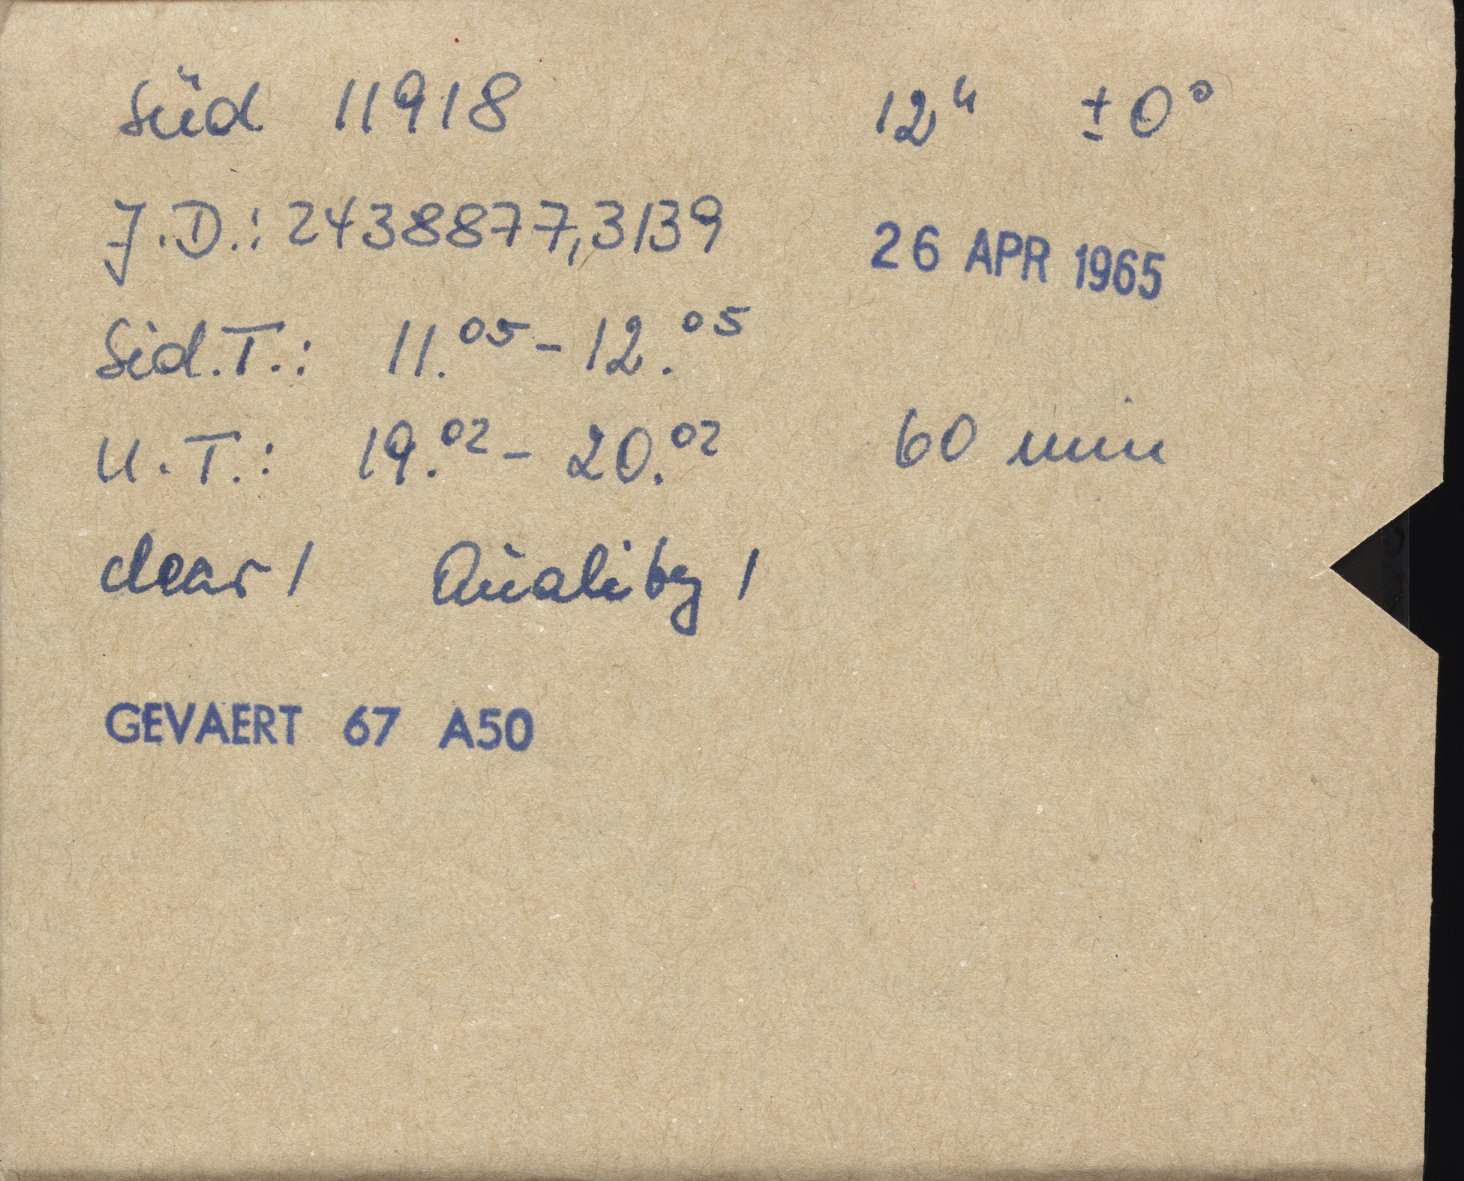 Süd 11918 12ʰ ±0°
J.D.: 2438877,3139 26 APR 1965
Sid.T.: 11.⁰⁵ - 12.⁰⁵
U.T.: 19.⁰² - 20.⁰² 60 min
clear 1 Quality 1
GEVAERT 67 A50